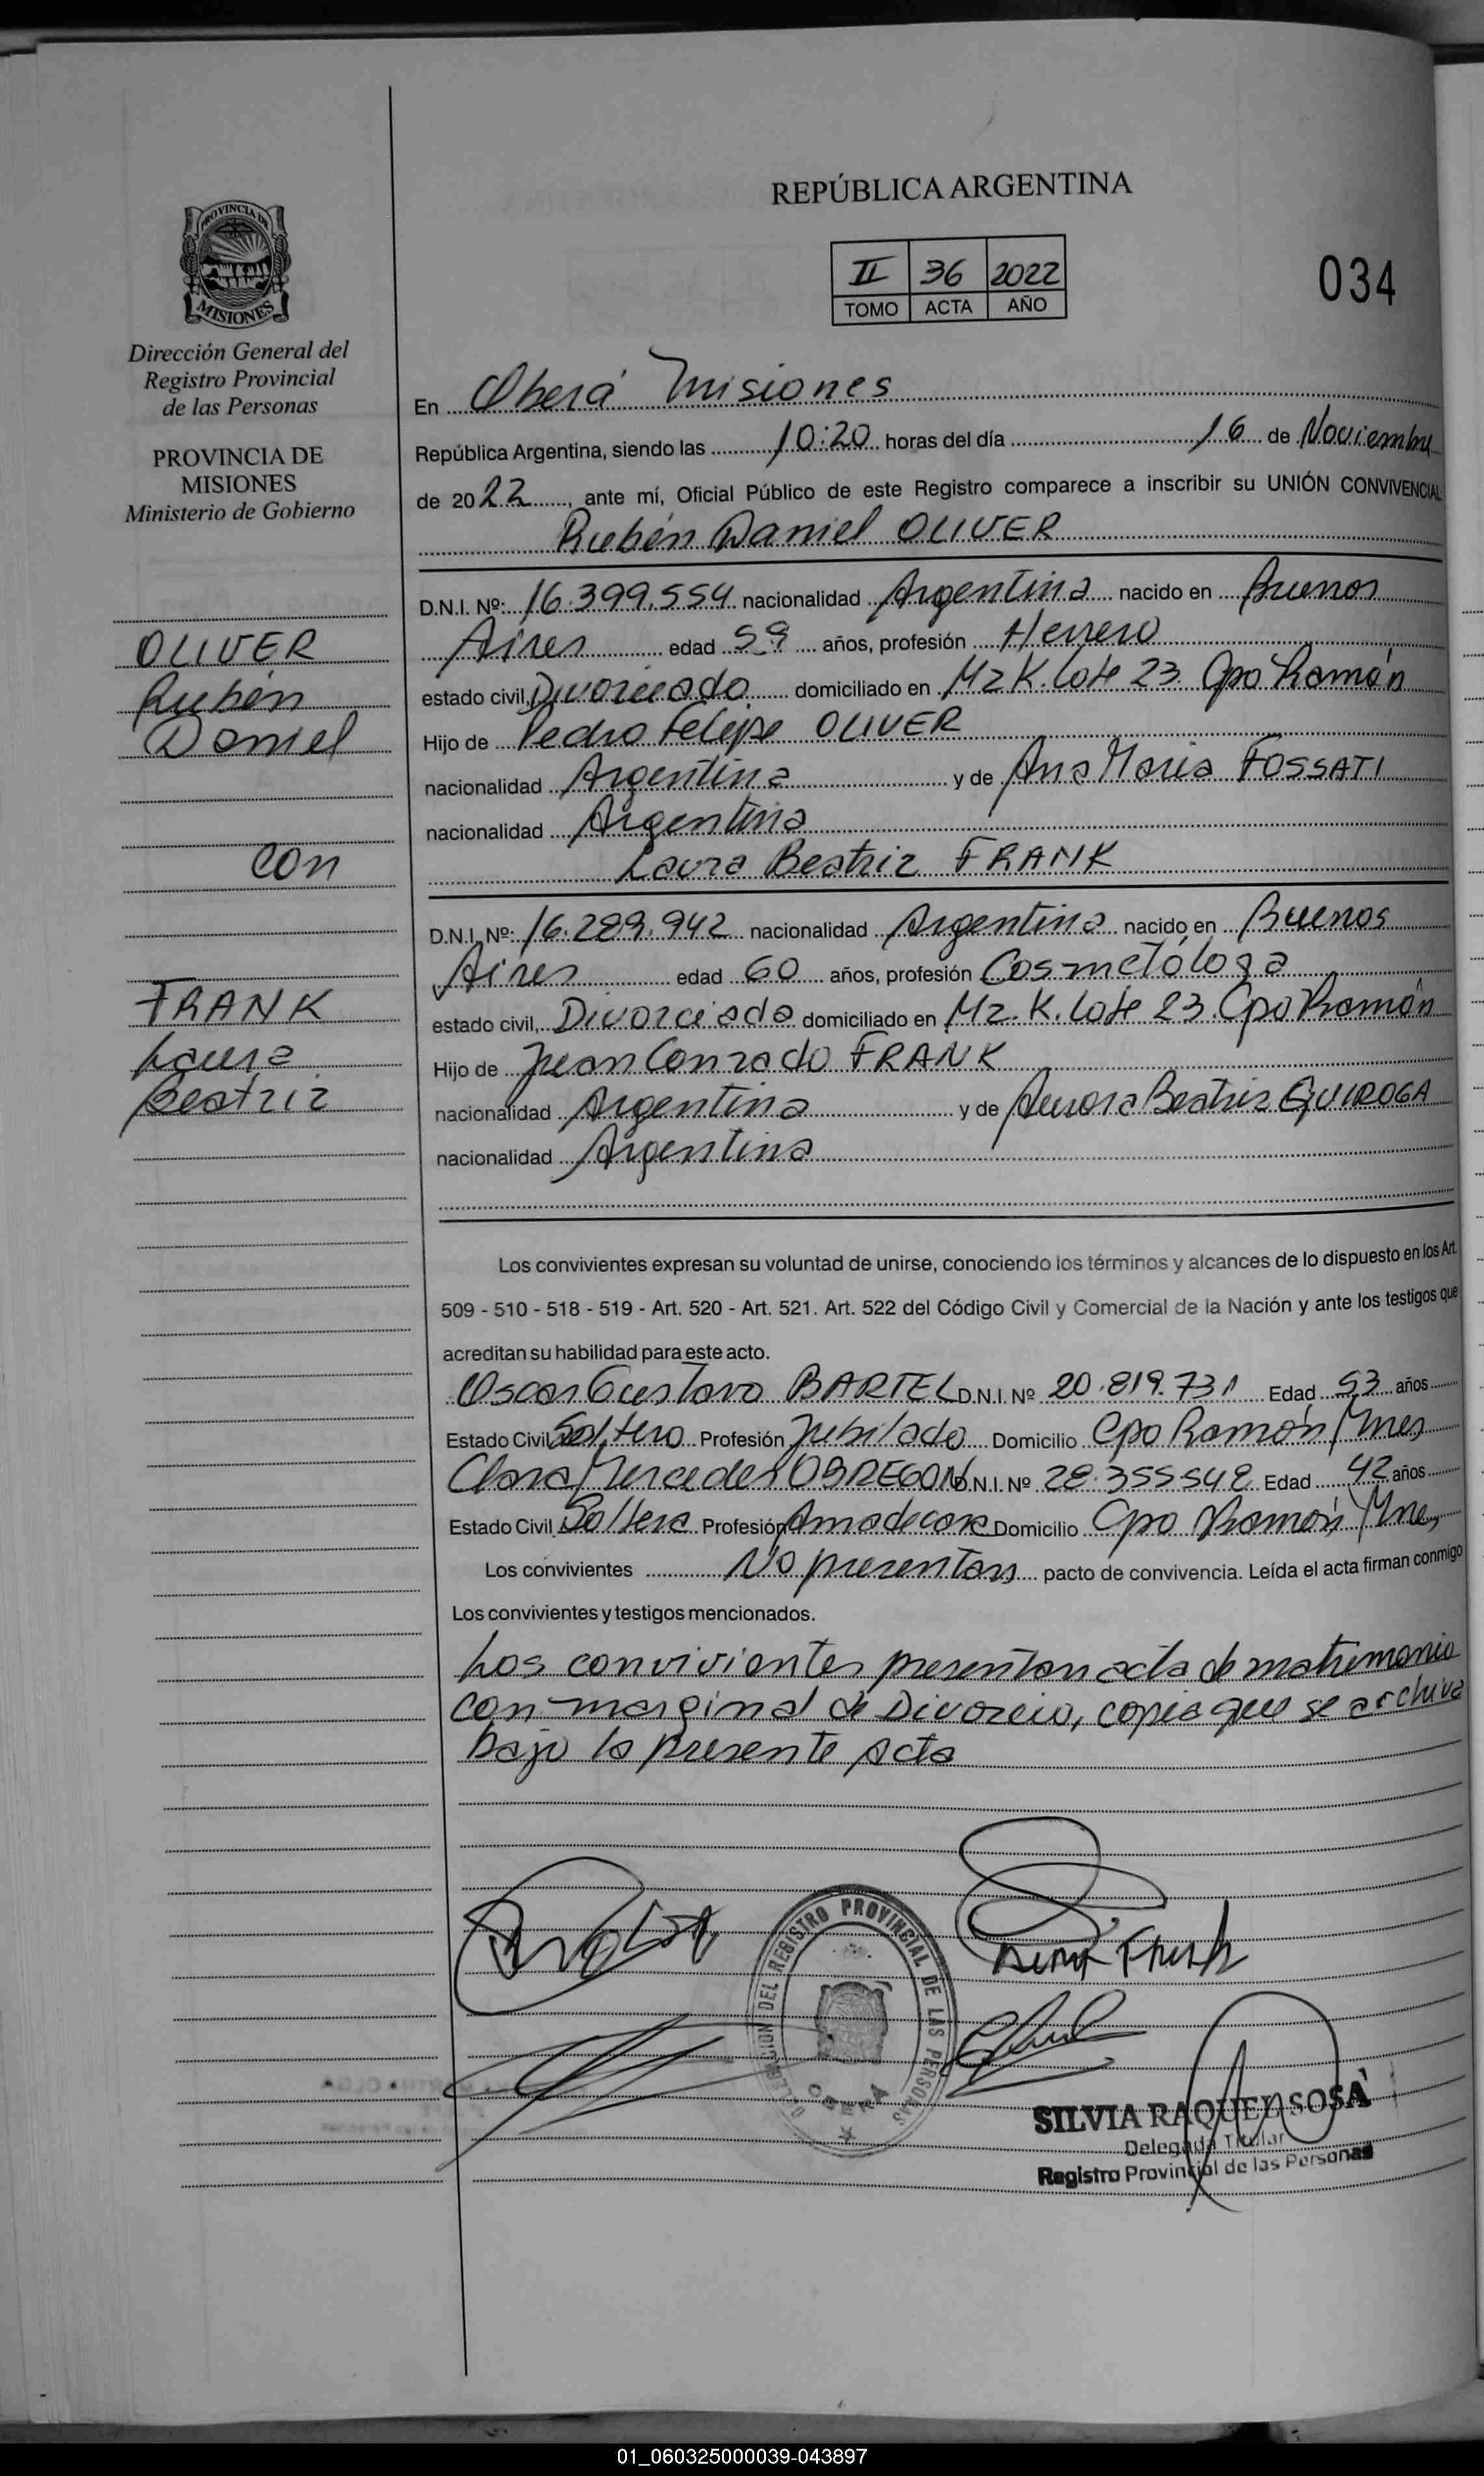 REPÚBLICA ARGENTINA
II 36 2022
TOMO ACTA AÑO
034
PROVINCIA DE
MISIONES
Dirección General del
Registro Provincial
de las Personas
PROVINCIA DE
MISIONES
Ministerio de Gobierno
OLIVER
Rubén
Daniel
con
FRANK
Laura
Beatriz
En Oberá Misiones
República Argentina, siendo las 10:20 horas del día 16 de Noviembre
de 2022, ante mí, Oficial Público de este Registro comparece a inscribir su UNIÓN CONVIVENCIAL
Rubén Daniel OLIVER
D.N.I. Nº: 16.399.554 nacionalidad Argentina nacido en Buenos
Aires edad 59 años, profesión Herrero
estado civil, Divorciado domiciliado en Mz K. lote 23. Cpo Ramón
Hijo de Pedro Felipe OLIVER
nacionalidad Argentina y de Ana Maria FOSSATI
nacionalidad Argentina
Laura Beatriz FRANK
D.N.I. Nº: 16.289.942 nacionalidad Argentina nacido en Buenos
Aires edad 60 años, profesión Cosmetóloga
estado civil, Divorciada domiciliado en Mz. K. lote 23. Cpo Ramón
Hijo de Juan Conrado FRANK
nacionalidad Argentina y de Aurora Beatriz QUIROGA
nacionalidad Argentina
Los convivientes expresan su voluntad de unirse, conociendo los términos y alcances de lo dispuesto en los Art.
509 - 510 - 518 - 519 - Art. 520 - Art. 521. Art. 522 del Código Civil y Comercial de la Nación y ante los testigos que
acreditan su habilidad para este acto.
Oscar Gustavo BARTEL D.N.I. Nº 20.819.731 Edad 53 años
Estado Civil Soltero Profesión Jubilado Domicilio Cpo Ramón Mnes
Clara Mercedes OBREGON D.N.I. Nº 28.355542 Edad 42 años
Estado Civil Soltera Profesión Amadecasa Domicilio Cpo Ramón Mnes
Los convivientes No presentan pacto de convivencia. Leída el acta firman conmigo
Los convivientes y testigos mencionados.
Los convivientes presentan acta de matrimonio
con marginal de Divorcio, copia que se archiva
bajo la presente Acta
DELEGACION DEL REGISTRO PROVINCIAL DE LAS PERSONAS
OBERA
SILVIA RAQUEL SOSA
Delegada Titular
Registro Provincial de las Personas
01_060325000039-043897